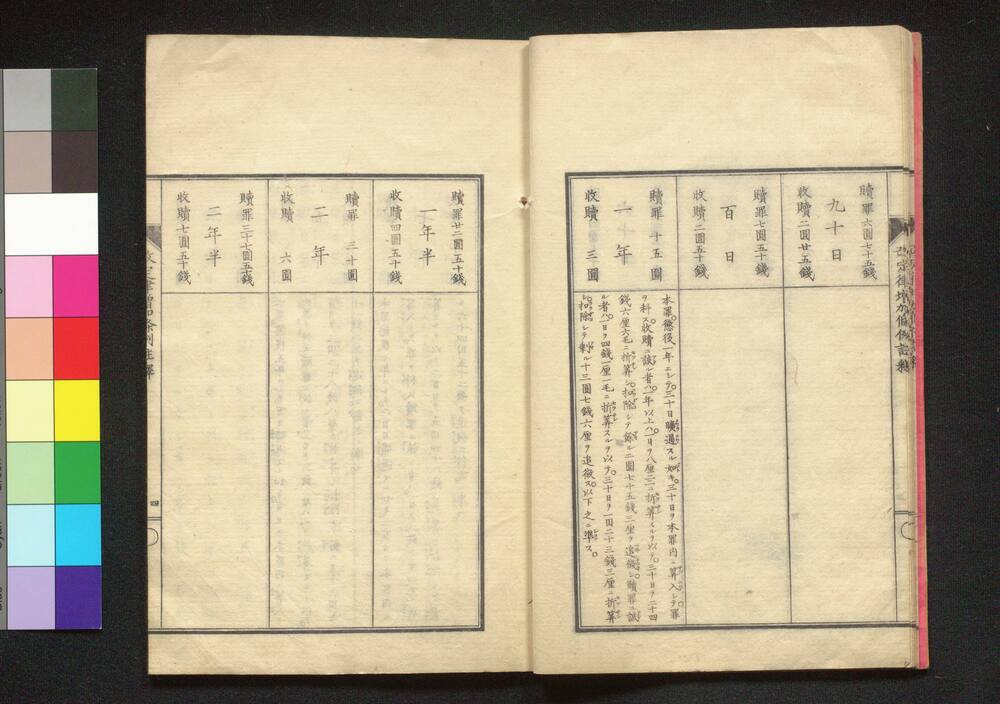 贖罪六圓七十五錢
九十日
收贖二圓廿五錢
贖罪七圓五十錢
百日
收贖二圓五十錢
贖罪十五圓
一年
收贖三圓
本罪懲役一年ニシテ。三十日贖過スル如キ。三十日ヲ本罪内ニ算入シテ罪
ヲ科ス。收贖ニ該ル者ハ。一年以上ハ。一日ヲ八厘三毛ニ折算スルヲ以テ。三十日ヲ二十四
錢六厘六毛ニ折算シ。扣除シテ餘ル二圓七十五錢三厘ヲ追徴シ。贖罪ニ該
ル者ハ。一日ヲ四錢一厘一毛ニ折算スルヲ以テ。三十日ヲ一圓二十三錢三厘ニ折算
シ。扣除シテ剰ル十三圓七錢六厘ヲ追徴ス。以下之ニ準ス。
贖罪廿二圓五十錢
一年半
收贖四圓五十錢
贖罪三十圓
二年
收贖六圓
贖罪三十七圓五十錢
二年半
收贖七圓五十錢
四